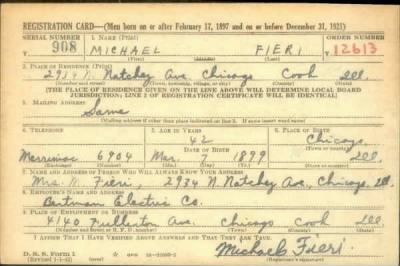 REGISTRATION CARD—(Men born on or after February 17, 1897 and on or before December 31, 1921)
SERIAL NUMBER 1. NAME (Print) ORDER NUMBER
908 MICHAEL FIERI 12613
(First) (Middle) (Last)
2. PLACE OF RESIDENCE (Print)
2934 N. Natchey Ave Chicago Cook Ill.
(Number and street) (Town, township, village, or city) (County) (State)
[THE PLACE OF RESIDENCE GIVEN ON THE LINE ABOVE WILL DETERMINE LOCAL BOARD
JURISDICTION; LINE 2 OF REGISTRATION CERTIFICATE WILL BE IDENTICAL]
3. MAILING ADDRESS
Same
[Mailing address if other than place indicated on line 2. If same insert word same]
4. TELEPHONE 5. AGE IN YEARS 6. PLACE OF BIRTH
42 Chicago
DATE OF BIRTH (Town or county)
Merrimac 6904 Mar. 7 1899 Ill.
(Exchange) (Number) (Mo.) (Day) (Yr.) (State or country)
7. NAME AND ADDRESS OF PERSON WHO WILL ALWAYS KNOW YOUR ADDRESS
Mrs. M. Fieri, 2934 N. Natchey Ave, Chicago, Ill.
8. EMPLOYER'S NAME AND ADDRESS
Electric Co.
9. PLACE OF EMPLOYMENT OR BUSINESS
4140 Fullerton Ave Chicago Cook Ill
(Number and street or R. F. D. number) (Town) (County) (State)
I AFFIRM THAT I HAVE VERIFIED ABOVE ANSWERS AND THAT THEY ARE TRUE.
D. S. S. Form 1
(Revised 1-1-42) (over)
Michael Fieri